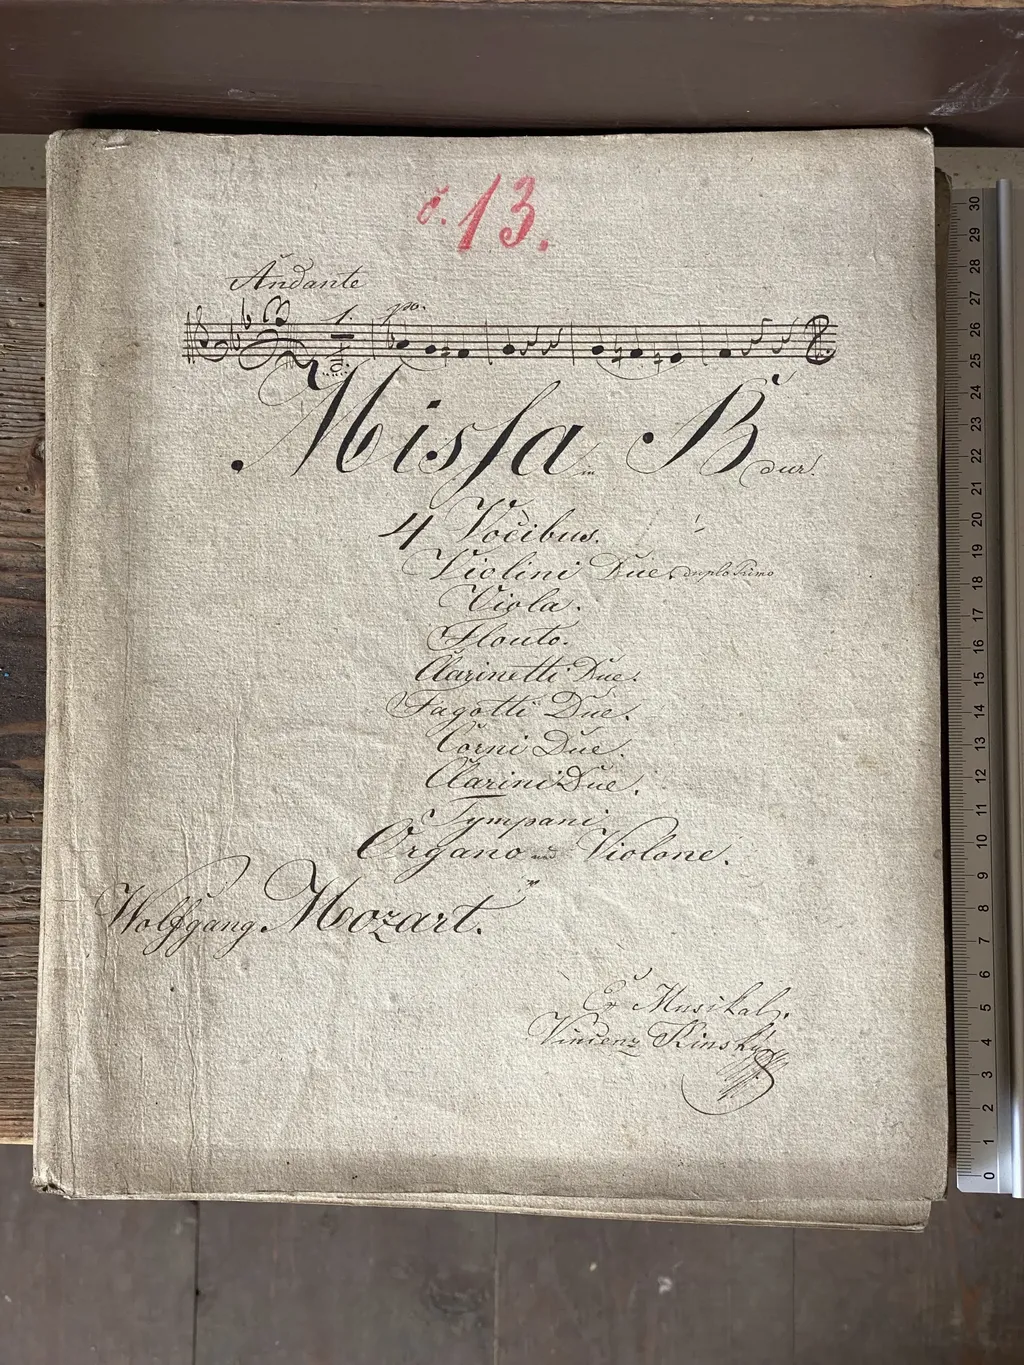 č. 13.
Andante
1. po.
Missa in B dur.
4 Vocibus.
Violini Due duplo Primo
Viola.
Flauto.
Clarinetti Due.
Fagotti Due.
Corni Due.
Clarini Due.
Tympani
Organo und Violone.
Wolfgang Mozart.
Ex Musikal.
Vincenz Kinsky
30
29
28
27
26
25
24
23
22
21
20
19
18
17
16
15
14
13
12
11
10
9
8
7
6
5
4
3
2
1
0